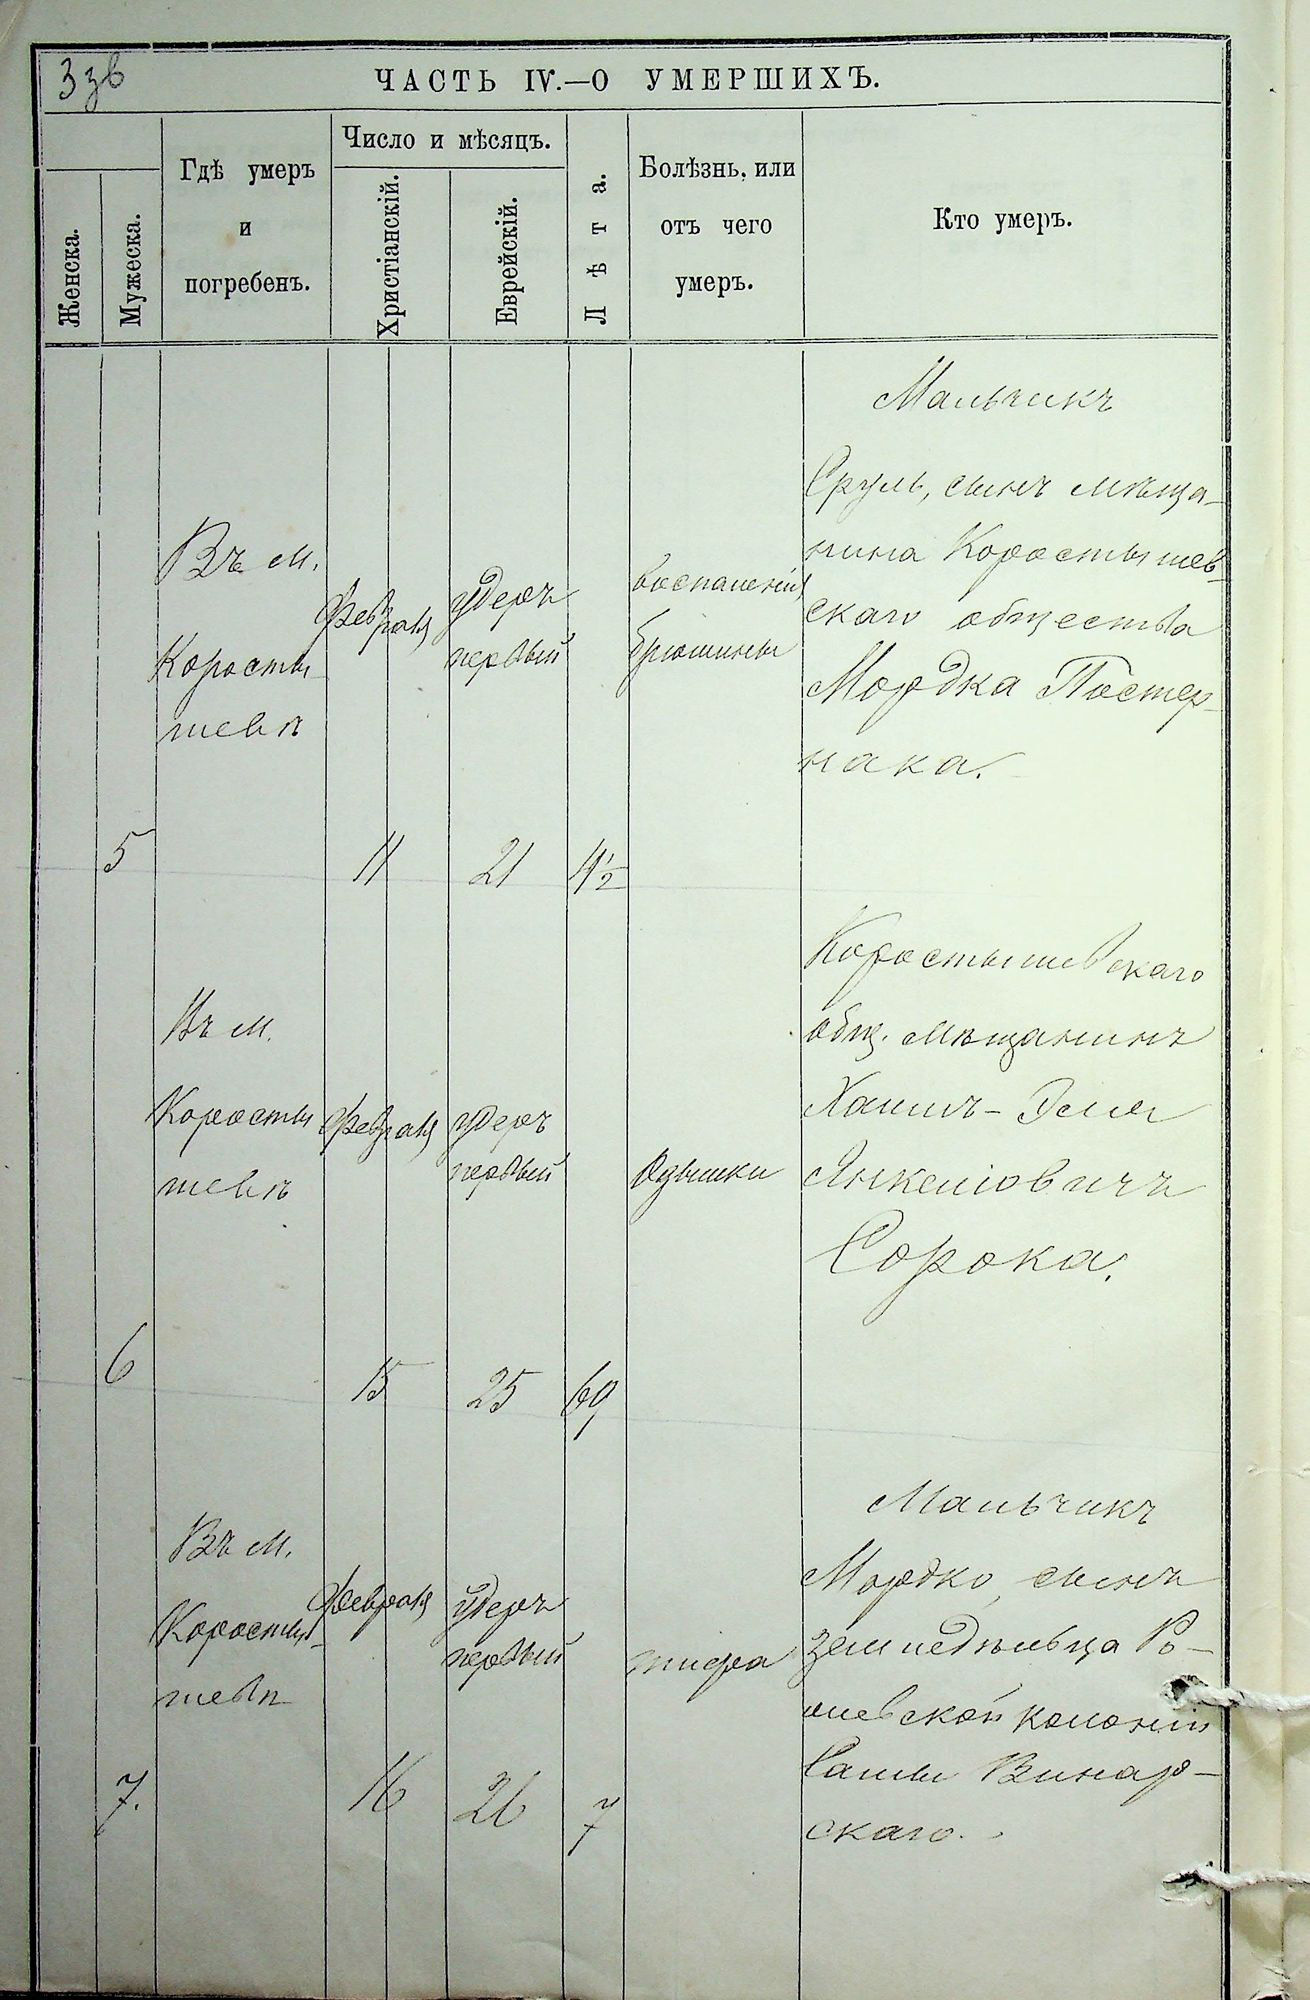 3 зв
ЧАСТЬ IV.—О УМЕРШИХЪ.
Женска.
Мужеска.
Гдѣ умеръ
и
погребенъ.
Число и мѣсяцъ.
Христіанскій.
Еврейскій.
Лѣта.
Болѣзнь, или
отъ чего
умеръ.
Кто умеръ.
5
Въ м.
Коросты-
шевѣ
Февраля
11
удеръ
первый
21
4½
воспаленія
брюшины
Мальчикъ
Сруль, сынъ мѣща-
нина Коростышев-
скаго общества
Мордка Пастер-
нака.
6
Въ м.
Коросты
шевѣ
Февраля
15
удеръ
первый
25
69
Одышки
Коростышевскаго
общ. мѣщанинъ
Янкеліовичъ
Сорока.
7.
Въ м.
Коросты-
шевѣ
Февраля
16
удеръ
первый
26
7
тифа
Мальчикъ
Мордко, сынъ
земледѣльца Ро-
левской колоніи
Винар-
скаго.